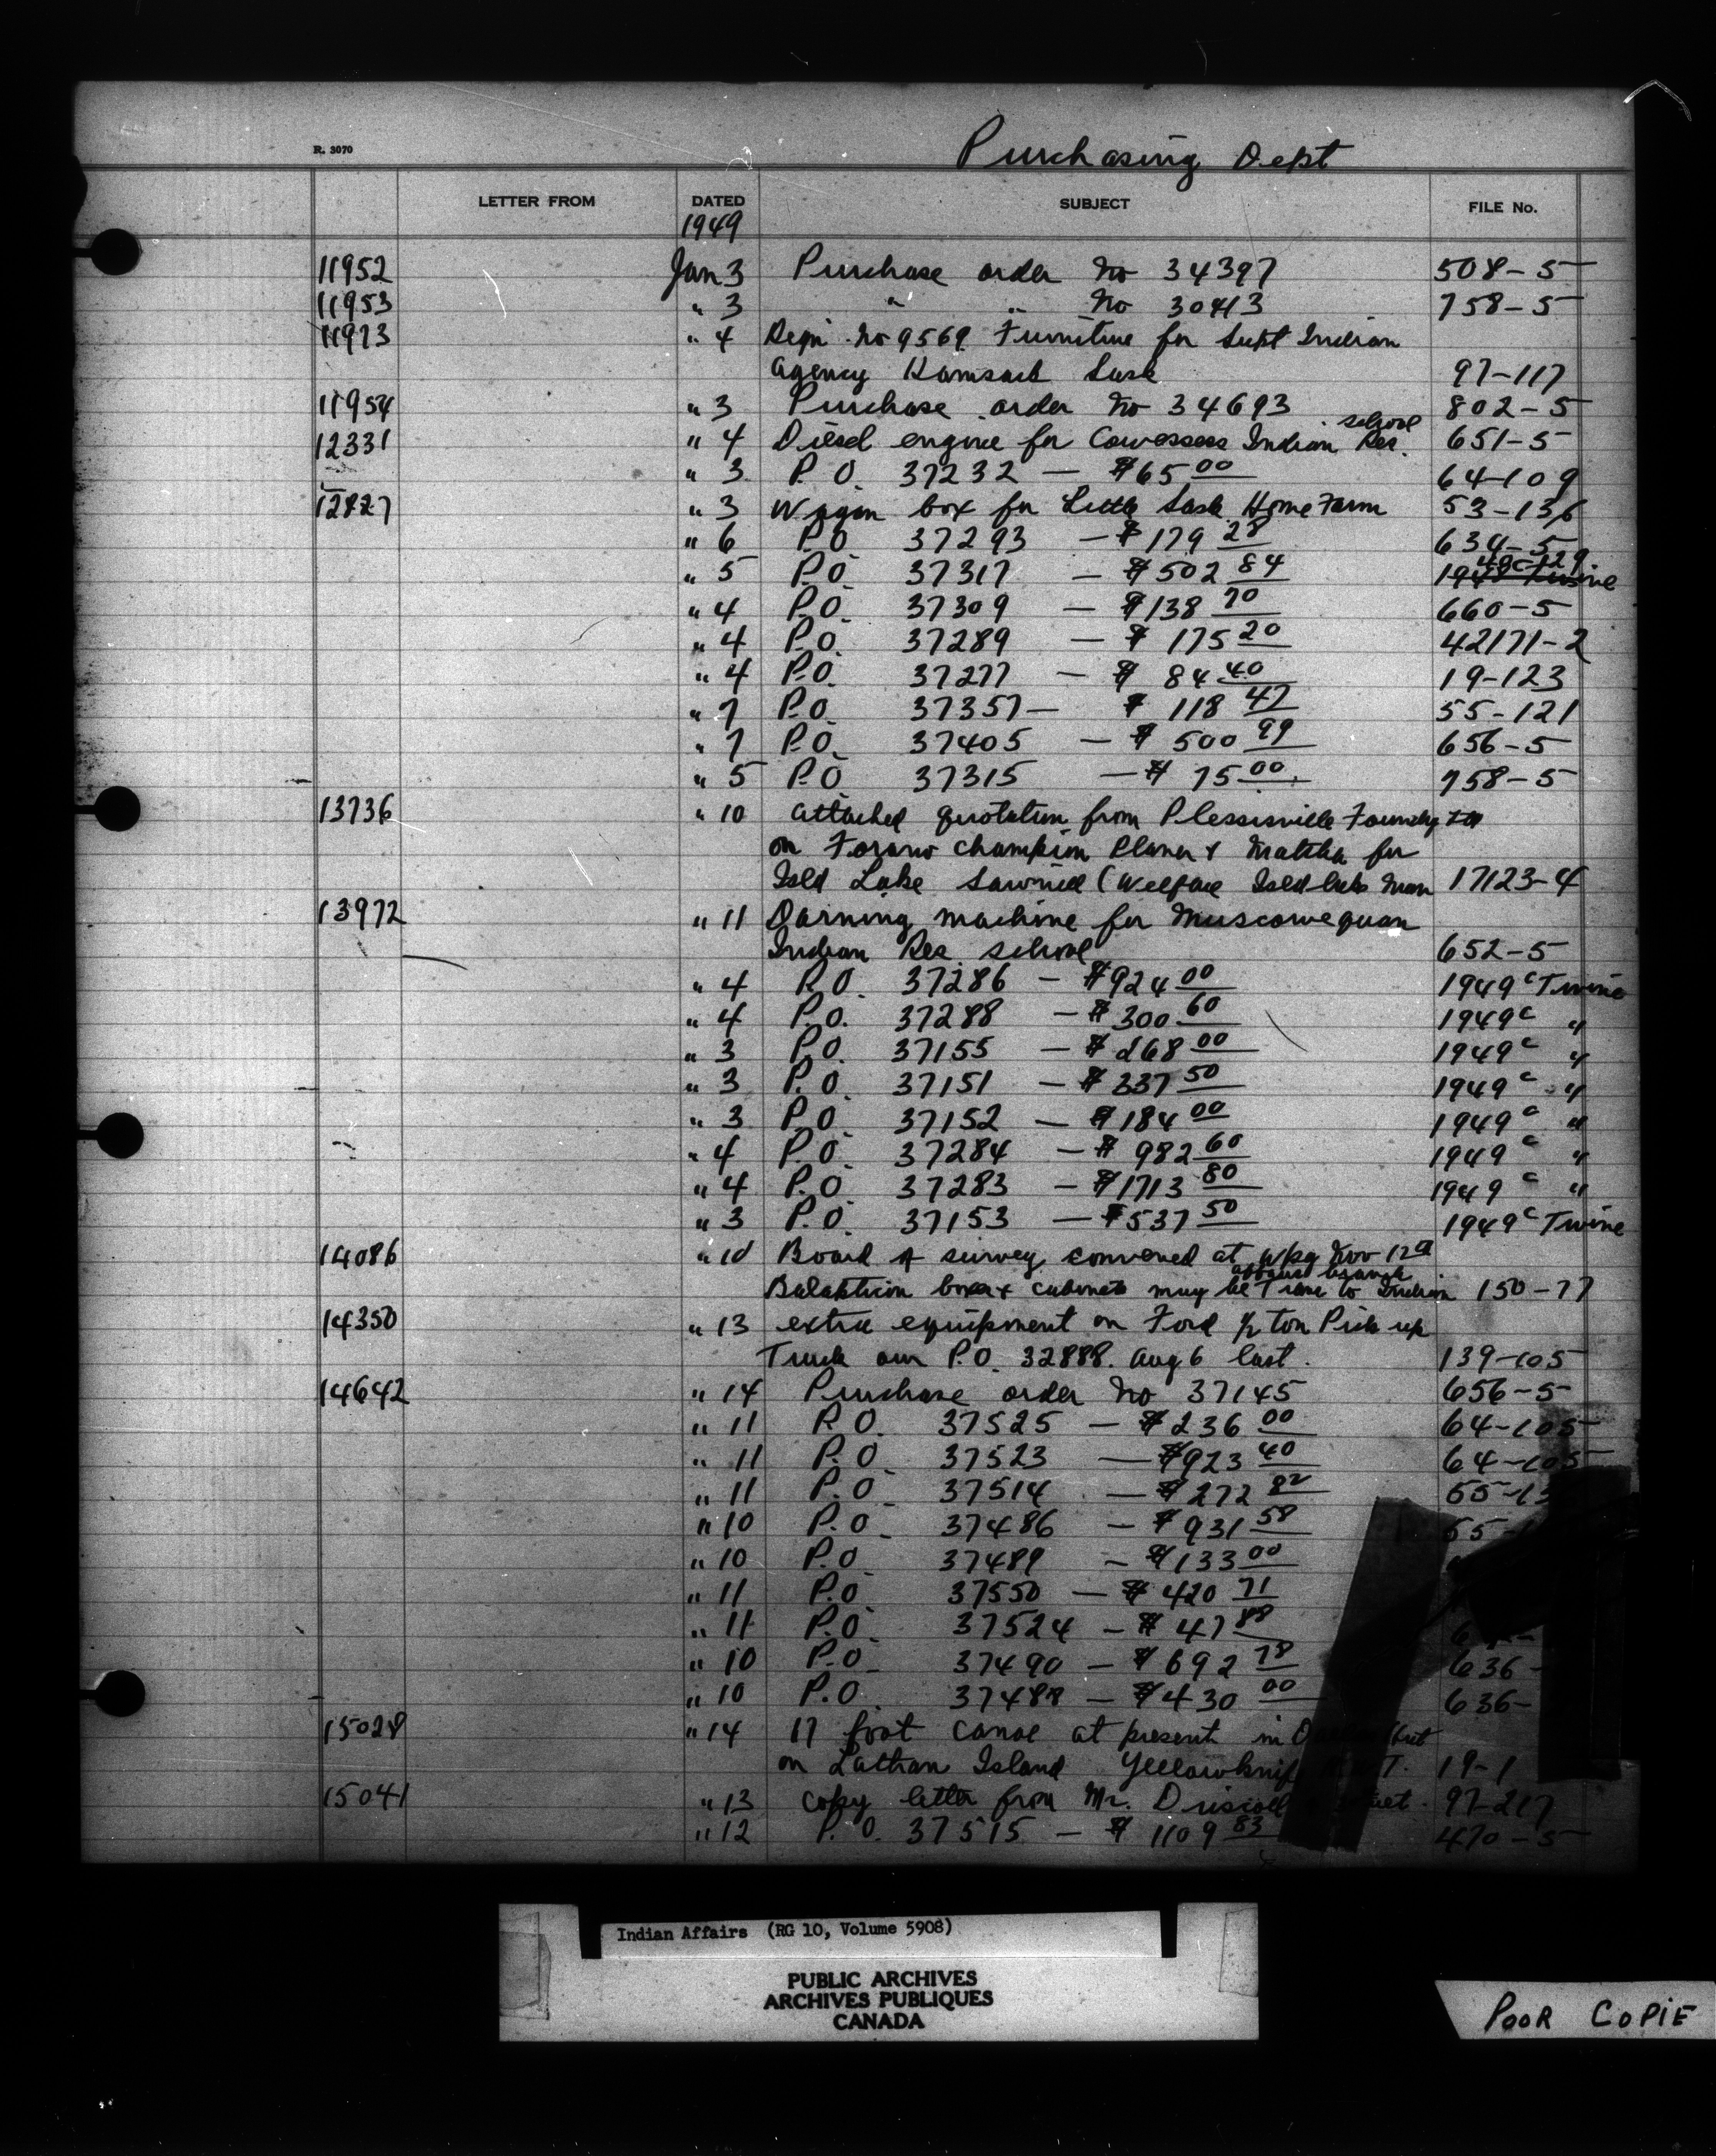 R. 3070
Purchasing Dept
LETTER FROM DATED SUBJECT FILE No.
1949
11952 Jan 3 Purchase order No 34397 508-5
11953 " 3 " " No 30413 758-5
11973 " 4 Reqn. No 9569 Furniture for Supt Indian
Agency Kamsack Sask 97-117
11954 " 3 Purchase order No 34693 802-5
school
12331 " 4 Diesel engine for Cowessess Indian Res. 651-5
" 3 P.O. 37232 — $65 00 64-109
12827 " 3 Wagon box for Little Sask Home Farm 53-136
" 6 P.O 37293 — $179 28 634-5
" 5 P.O. 37317 — $502 84 1948 Twine
" 4 P.O. 37309 — $138 70 660-5
" 4 P.O. 37289 — $175 20 42171-2
" 4 P.O. 37277 — $84 40 19-123
" 7 P.O. 37357 — $118 47 55-121
" 7 P.O. 37405 — $500 99 656-5
" 5 P.O 37315 — $75 00. 758-5
13736 " 10 attached quotation from Plessisville Foundry
on Forano champion Planer & Matcher for
Isld Lake Sawmill (Welfare Isld Lake Man 17123-4
13972 " 11 Darning machine for Muscowequan
Indian Res school 652-5
" 4 P.O. 37286 — $924 00 1949 c Twine
" 4 P.O. 37288 — $300 60 1949 c "
" 3 P.O. 37155 — $268 00 1949 c "
" 3 P.O. 37151 — $337 50 1949 c "
" 3 P.O. 37152 — $184 00 1949 c "
" 4 P.O. 37284 — $982 60 1949 c "
" 4 P.O. 37283 — $1713 80 1949 c "
" 3 P.O. 37153 — $537 50 1949 c Twine
14086 " 10 Board of survey convened at Wpg Nov 12
affairs branch
boxes & cabinets may be Trans to Indian 150-77
14350 " 13 extra equipment on Ford ½ ton Pick up
Truck our P.O. 32888. Aug 6 last. 139-105
14642 " 14 Purchase order No 37145 656-5
" 11 P.O. 37525 — $236 00 64-105
" 11 P.O. 37523 — $923 40 64-105
" 11 P.O. 37514 — $272 82 55-13
" 10 P.O. 37486 — $931 58 55-
" 10 P.O 37489 — $133 00
" 11 P.O 37550 — $420 71
" 11 P.O. 37524 — $47 88
" 10 P.O. 37490 — $692 78 636-
" 10 P.O. 37488 — $430 00 636-
15028 " 14 17 foot canoe at present in
on Lathan Island Yellowknife 19-1
15041 " 13 copy letter from Mr. Driscoll 97-217
" 12 P.O. 37515 — $1109 83 470-5
Indian Affairs (RG 10, Volume 5908)
PUBLIC ARCHIVES
ARCHIVES PUBLIQUES
CANADA
POOR COPIE